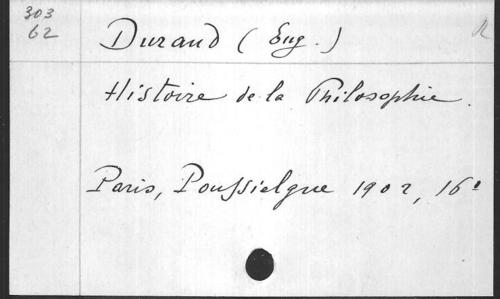 303
62
Durand (Eug.)
Histoire de la Philosophie.
Paris, Poussielgue 1902, 16º